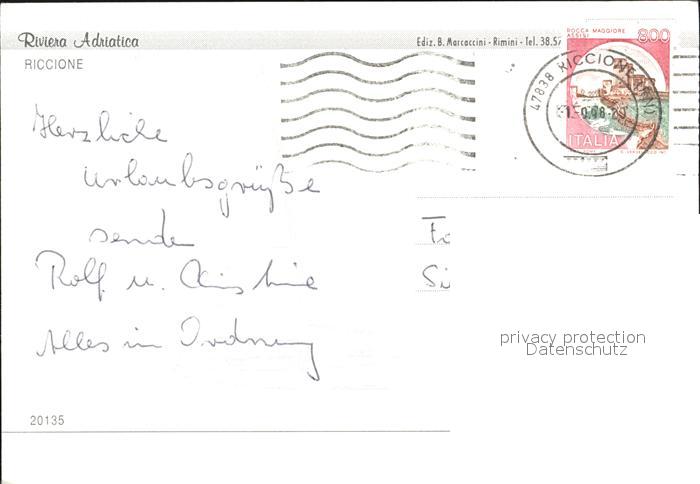 Riviera Adriatica
RICCIONE
Ediz. B. Marcaccini - Rimini - Tel. 38.57
ROCCA MAGGIORE
ASSISI
800
47838 RICCIONE
ITALIA
Herzliche
Urlaubsgrüße
senden
Rolf u. Christine
Alles in Ordnung
Si
privacy protection
Datenschutz
20135